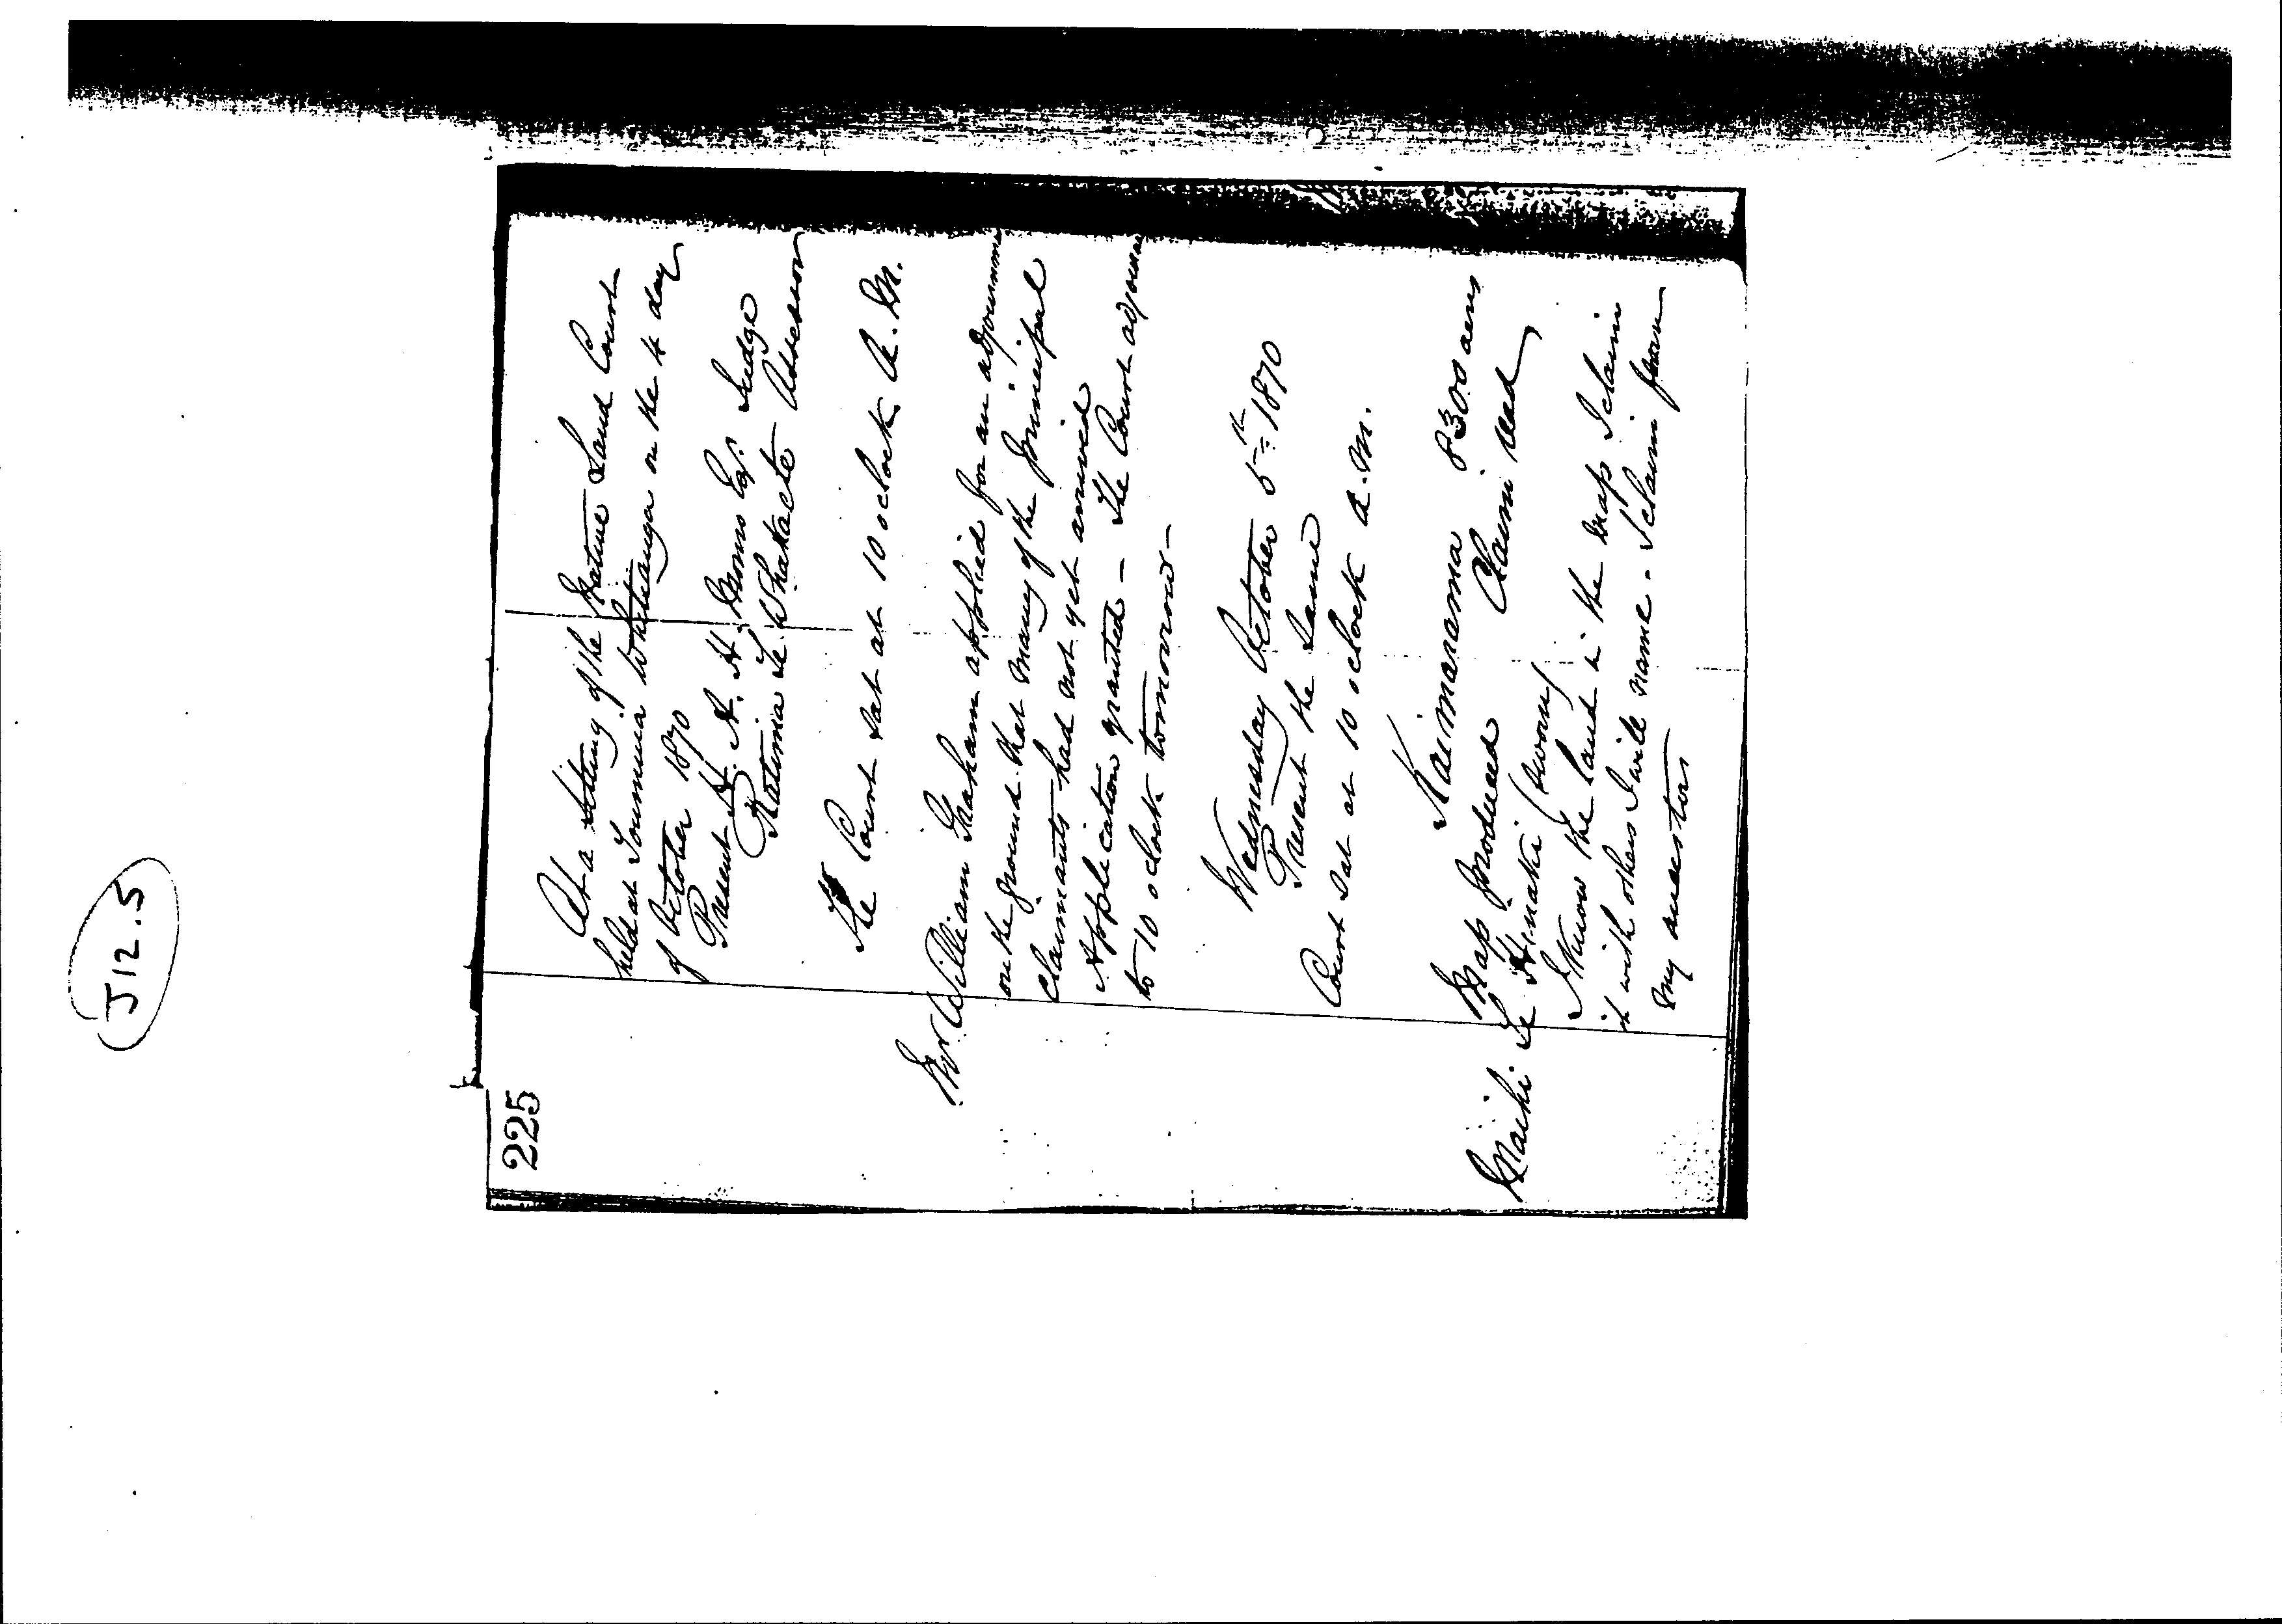 J12.5
225
At a sitting of the Native Land Court
held at Whitianga on the 4 day
of October 1870
Present H. A. H. Monro Esq. Judge
Ratima Te Whakaete Assessor
The Court sat at 10 oclock A.M.
Mr William Graham applied for an adjournm
on the ground that many of the principal
claimants had not yet arrived
Application granted – The Court adjourn
to 10 oclock tomorrow –
Wednesday October 5th 1870
Present the Same
Court sat at 10 oclock a.m.
Kaimarama 8300 acres
Map produced Claim read
Maihi Te Hinaki (sworn)
I know the land in the map I claim
it with others I will name. I claim from
my ancestors